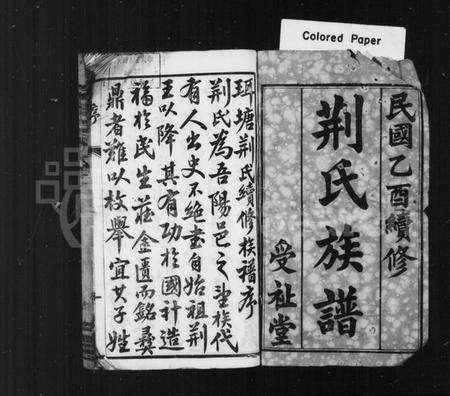 Colored Paper
民國乙酉續修
荆氏族譜
受祉堂
珥塘荆氏續修族譜序
荆氏為吾陽邑之望族代
有人出史不絕書自始祖荆
王以降其有功於國計造
福於民生莊金匱而銘彝
鼎者難以枚舉宜其子姓
序